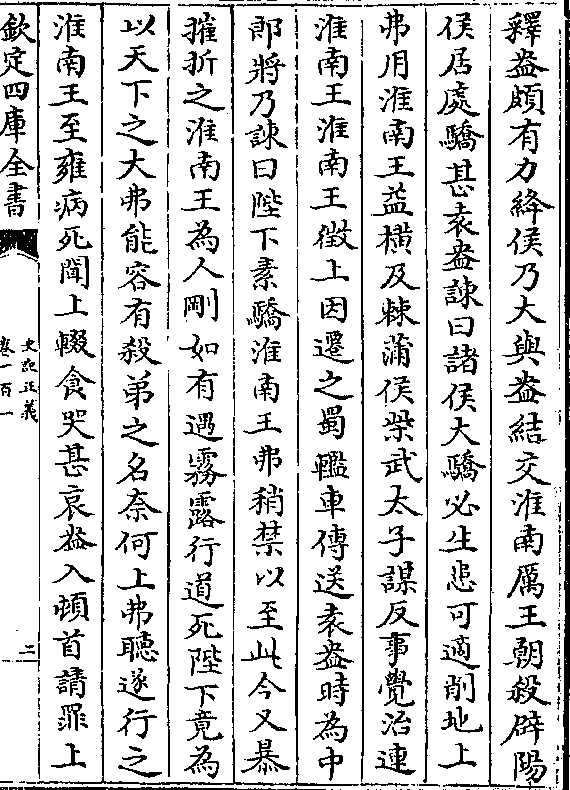 釋盎頗有力絳侯乃大與盎結交淮南厲王朝殺辟陽
侯居處驕甚袁盎諫曰諸侯大驕必生患可適削地上
弗用淮南王益橫及棘蒲侯柴武太子謀反事覺治連
淮南王淮南王徵上因遷之蜀轞車傳送袁盎時為中
郎將乃諫曰陛下素驕淮南王弗稍禁以至此今又暴
摧折之淮南王為人剛如有遇霧露行道死陛下竟為
以天下之大弗能容有殺弟之名奈何上弗聽遂行之
淮南王至雍病死聞上輟食哭甚哀盎入頓首請罪上
欽定四庫全書
史記正義
卷一百一
二